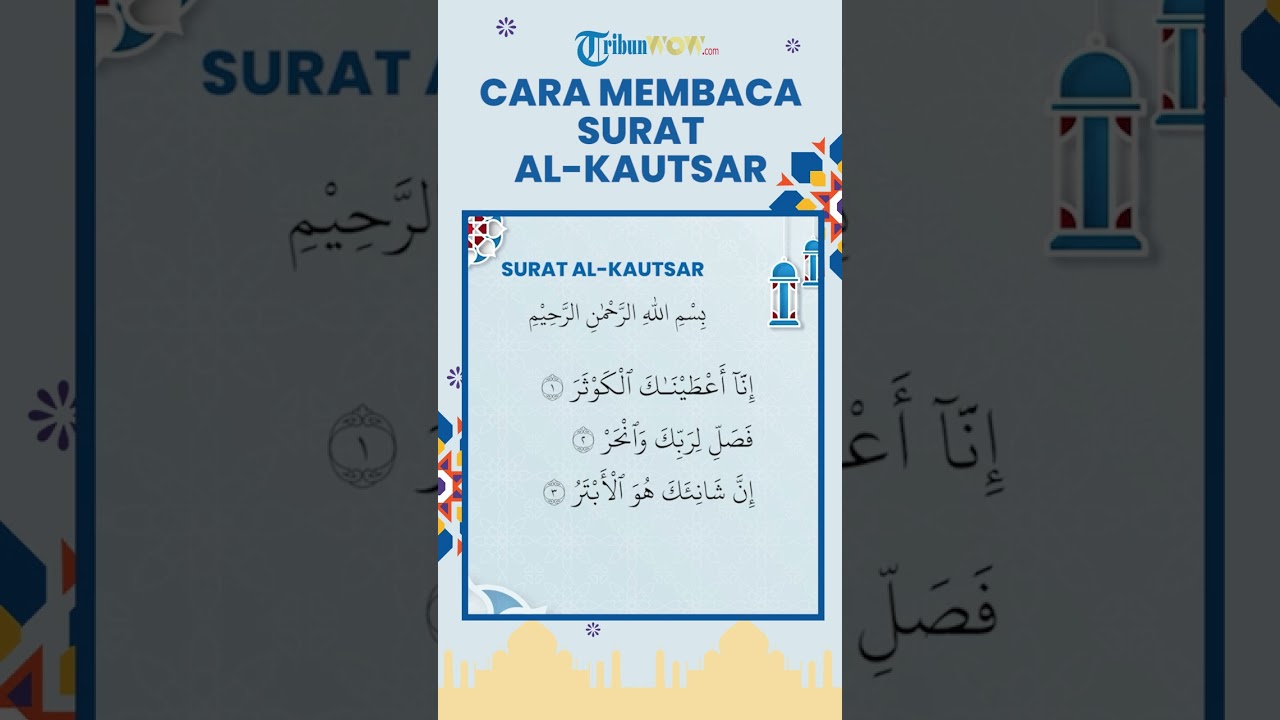 TribunWOW.com
CARA MEMBACA
SURAT
AL-KAUTSAR
SURAT AL-KAUTSAR
بِسْمِ اللهِ الرَّحْمٰنِ الرَّحِيْمِ
إِنَّآ أَعْطَيْنَـٰكَ ٱلْكَوْثَرَ ١
فَصَلِّ لِرَبِّكَ وَٱنْحَرْ ٢
إِنَّ شَانِئَكَ هُوَ ٱلْأَبْتَرُ ٣